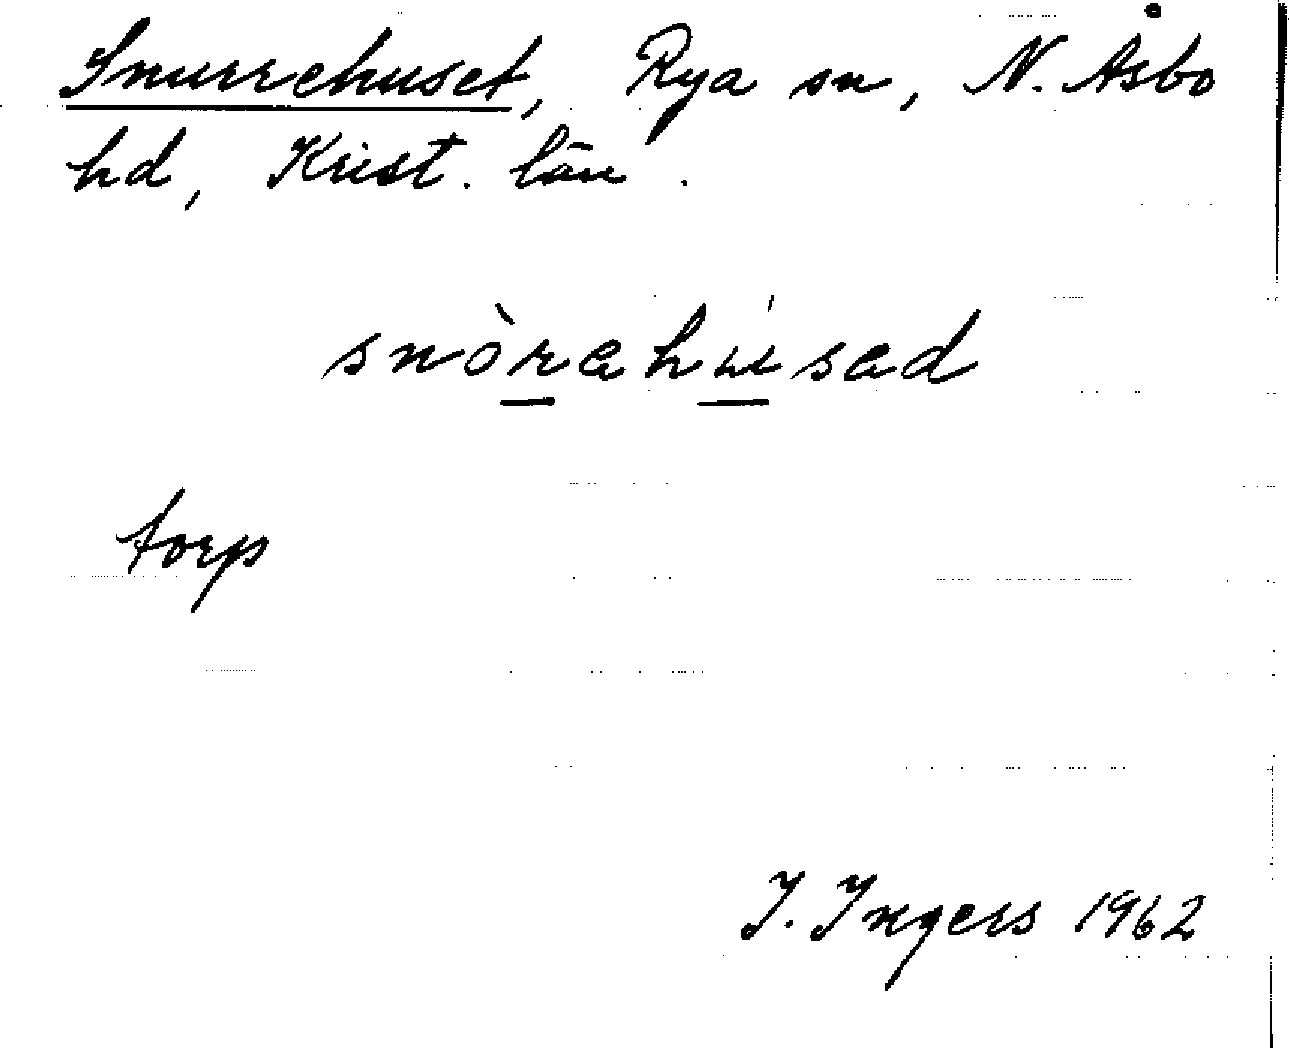 Snurrehuset, Rya sn, N. Åsbo
hd, Krist. län.
snòrahúsad
torp
I. Ingers 1962